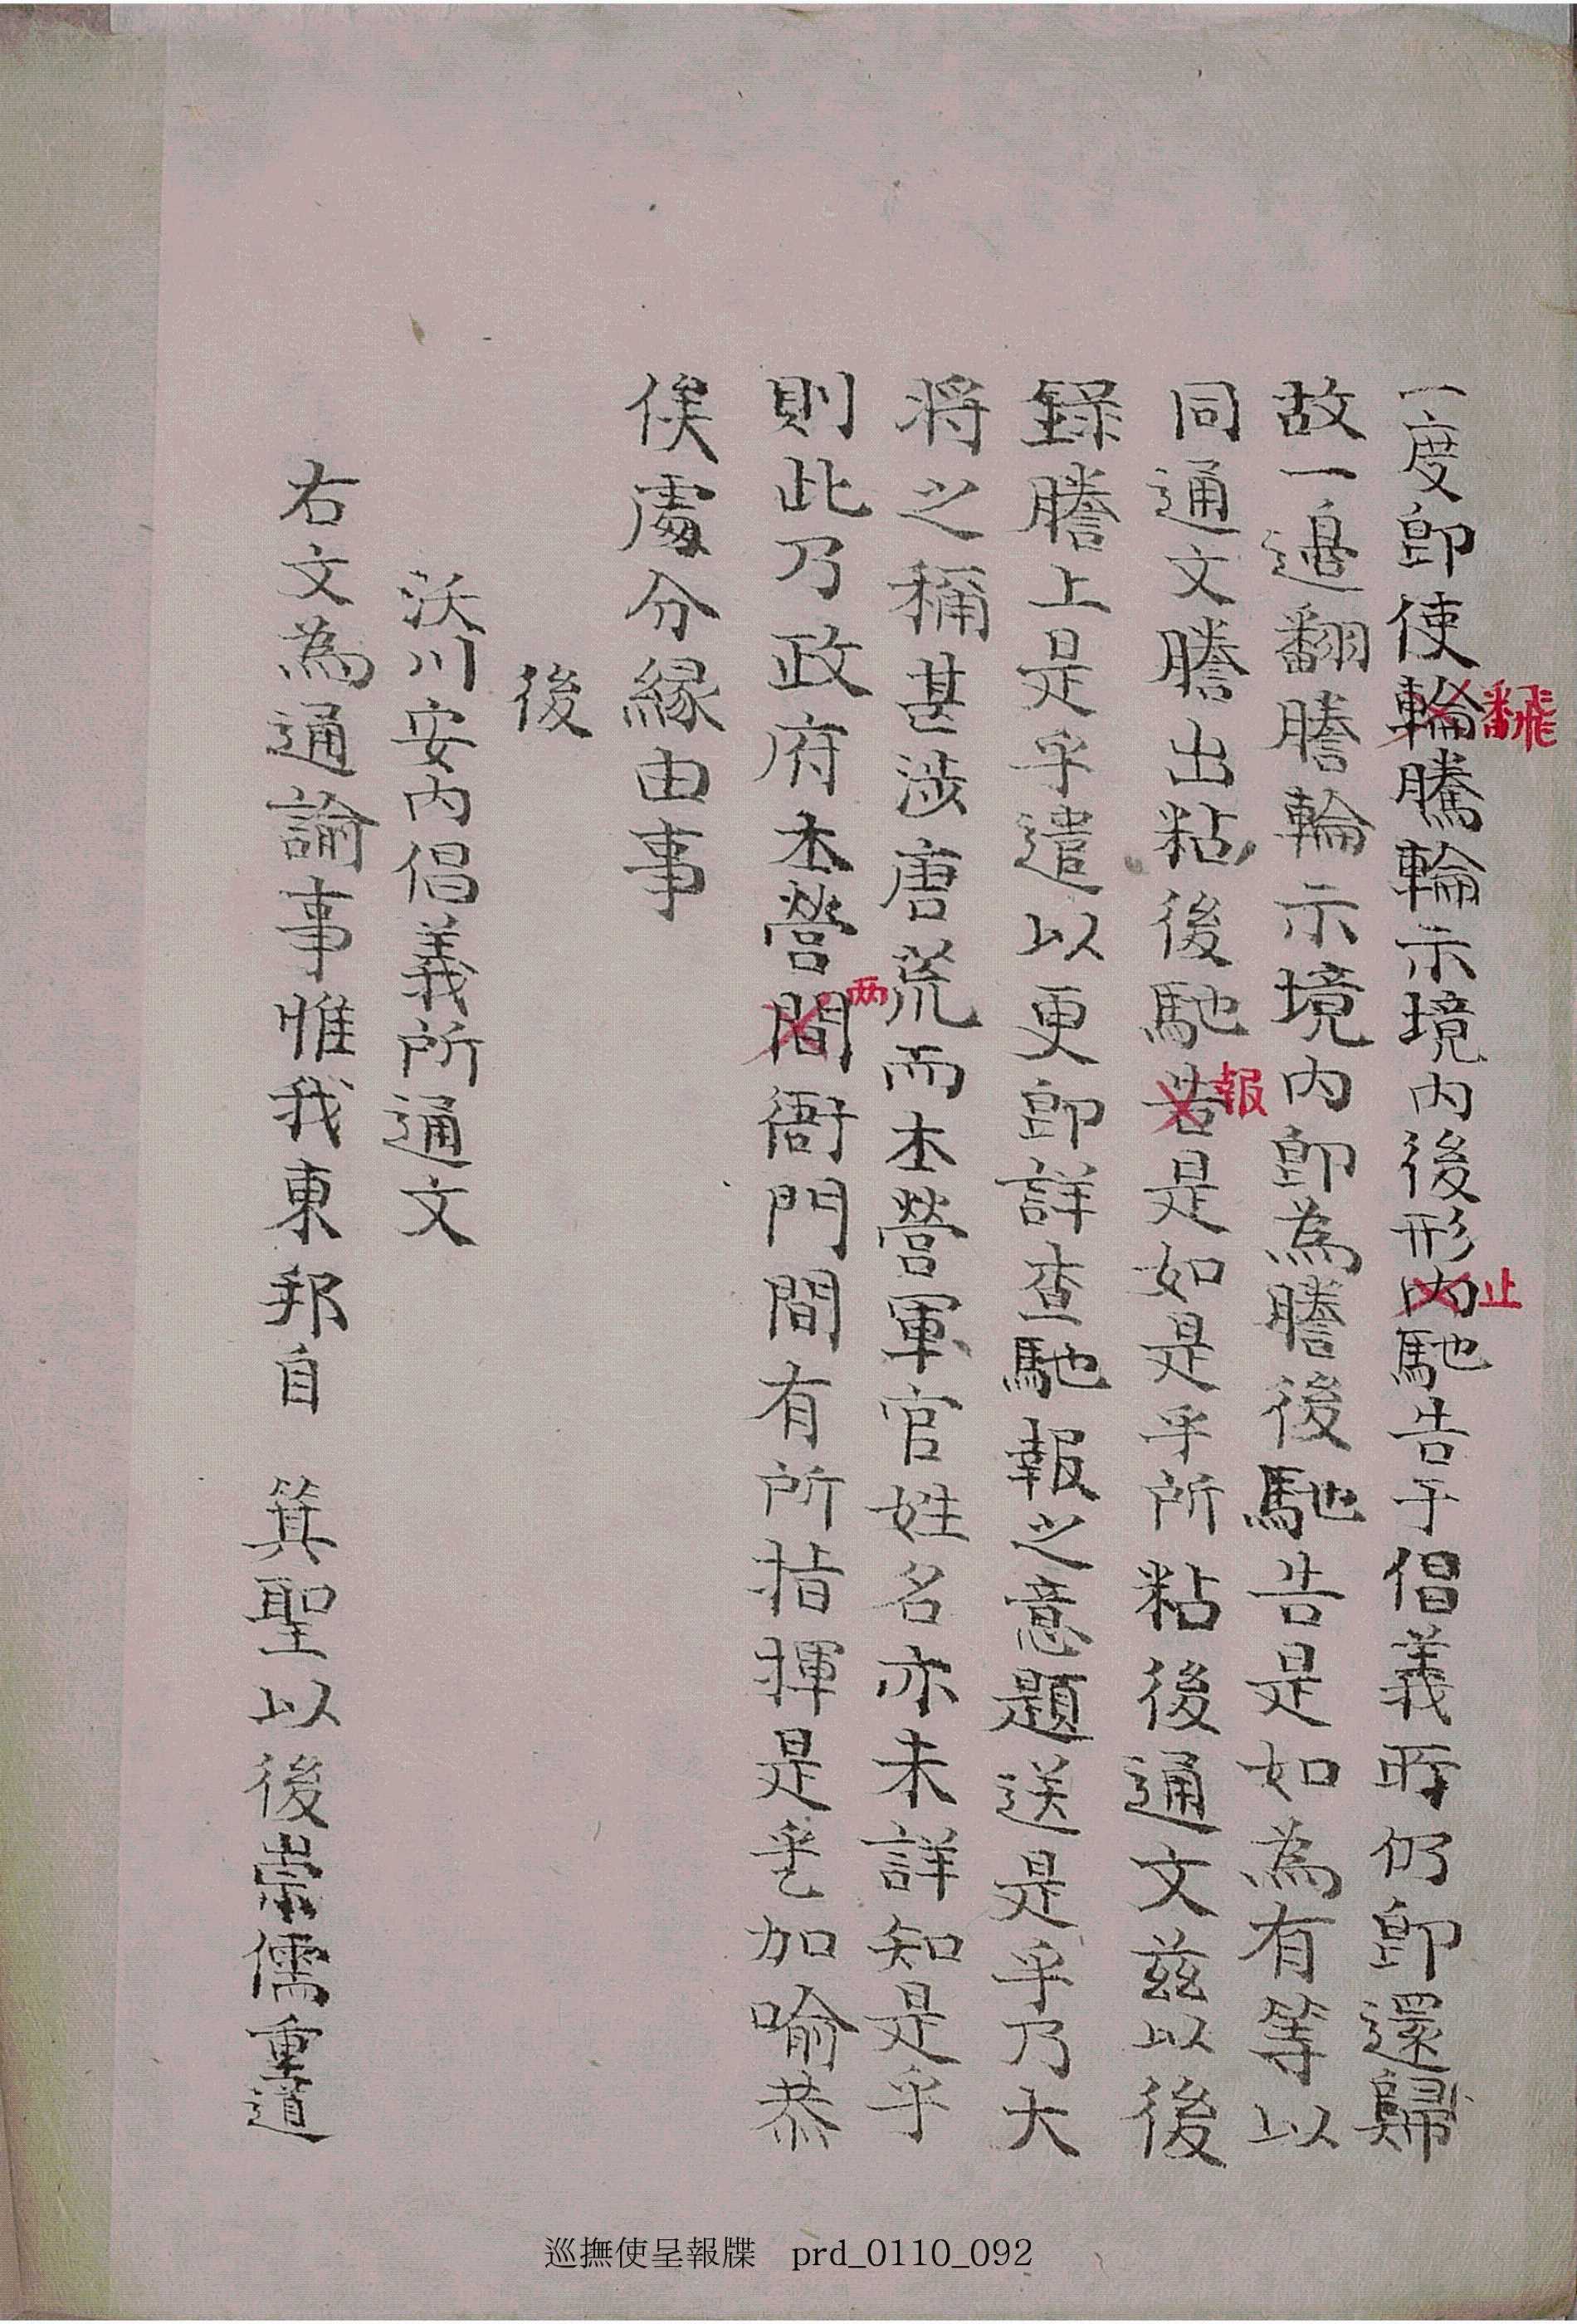 一度卽使輪騰輪示境內後形內馳告于倡義所仍卽還歸
翻
止
故一邊翻謄輪示境內卽爲謄後馳告是如爲有等以
同通文謄出粘後馳告是如是乎所粘後通文玆以後
報
錄謄上是乎遣以更卽詳查馳報之意題送是乎乃大
將之稱甚涉唐荒而本營軍官姓名亦未詳知是乎
則此乃政府本營間衙門間有所指揮是乎乙加喻恭
两
俟處分緣由事
後
沃川安內倡義所通文
右文爲通諭事惟我東邦自 箕聖以後崇儒重道
巡撫使呈報牒 prd_0110_092